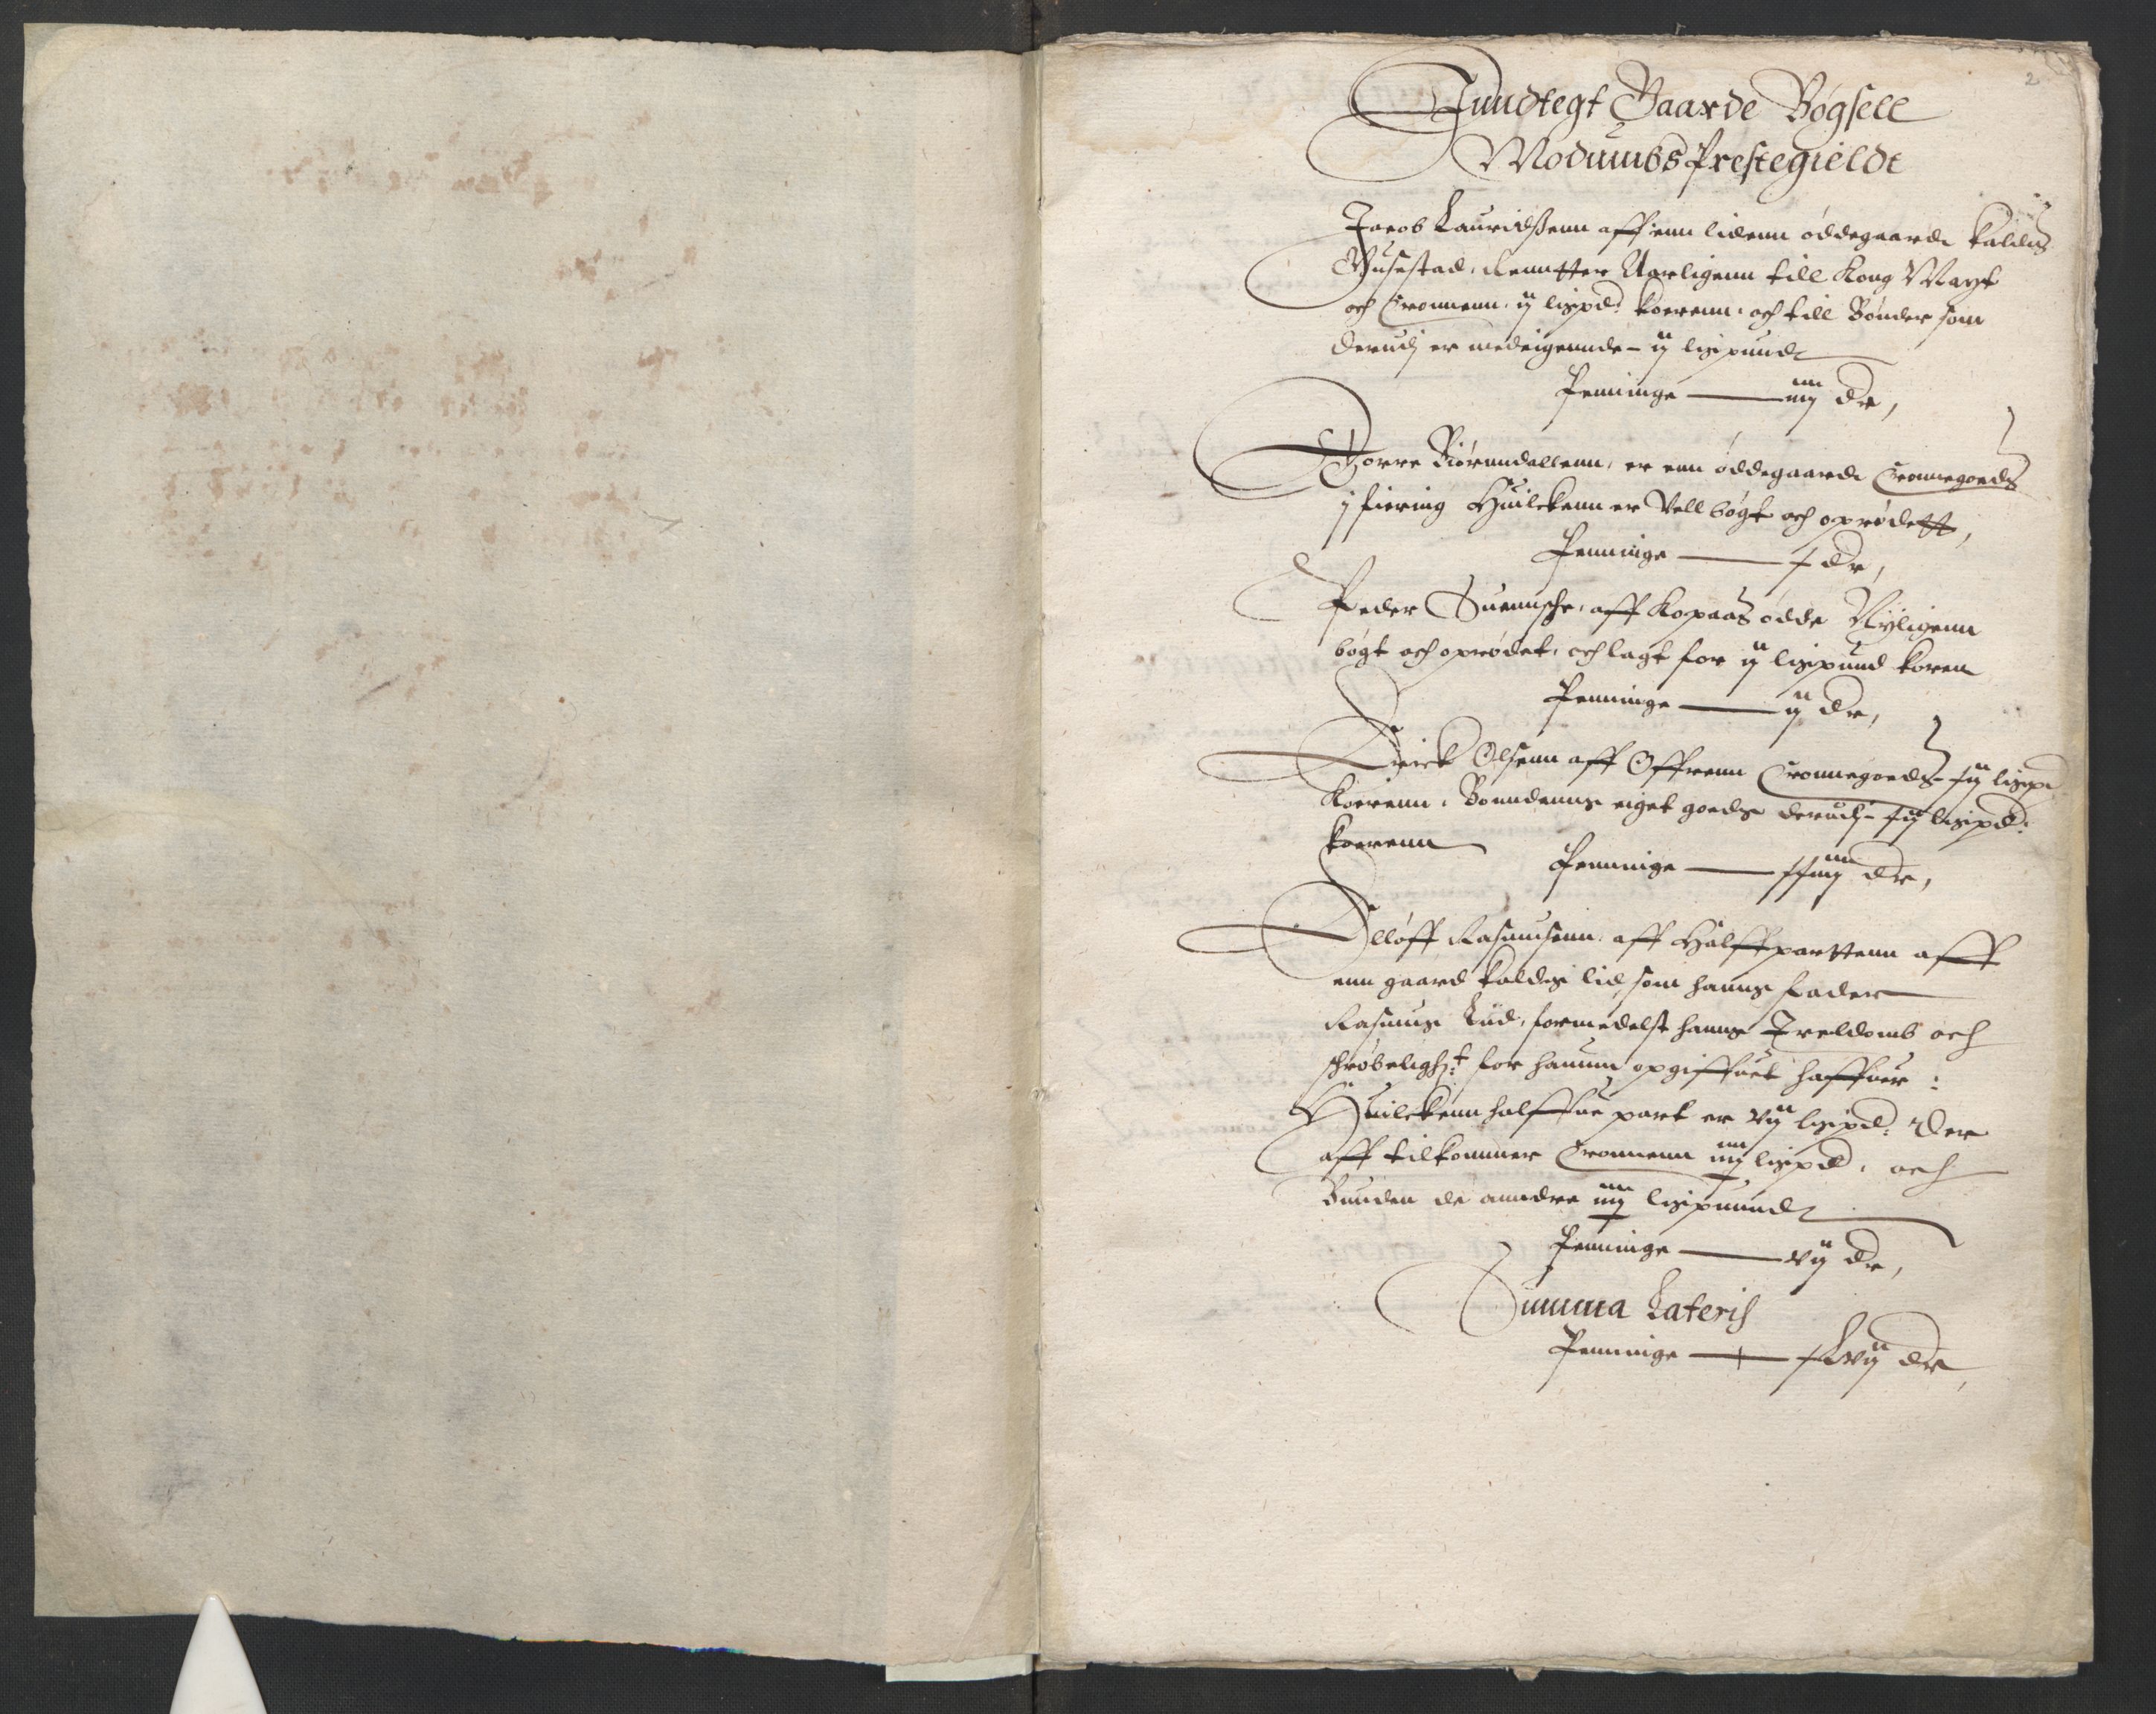 2
Inndtegt Gaarde Bøgsell
Modumbs Prestegieldt
Jacob Lauridtzenn aff enn lidenn øddegaarde kaldis
Gusestad, Rentter Aarligenn till Kong Mayt
och Cronnenn ij lispd: koerenn, och till Bønder som
derudj er medeigennde - ij lispund
Penninge — iiij dr,
Torre Biørnndallenn, er enn øddegaarde Cronnegoeds
j fiering Huilckenn er Vell bøgt och oprødett,
Penninge — j dr,
Peder Suennsche, aff Kopaas ødde Nyligenn
bøgt och oprødet, och lagt for ij lispund koren
Penninge — ij dr,
Erick Olsenn aff Offrenn Cronnegoeds - xij lispd
Koerenn, Bonndenns eiget goeds derudj - xij lispd:
koerenn
Penninge — xxiiij dr,
Olloff Rasmusenn, aff Halffparttenn aff
enn gaard kaldes lid, som hanns fader
Rasmus Liid, formedelst hanns Ireldomb och
schrøbeligh:t for hannum opgiffuet haffuer:
Huilckenn halffue part er vij lispd: Der
aff tilkommer Cronnenn iiij lispd, och
Bunden de anndre iiij lispunnd
Penninge — vij dr,
Summa Lateris
Penninge — xxxvij dr,